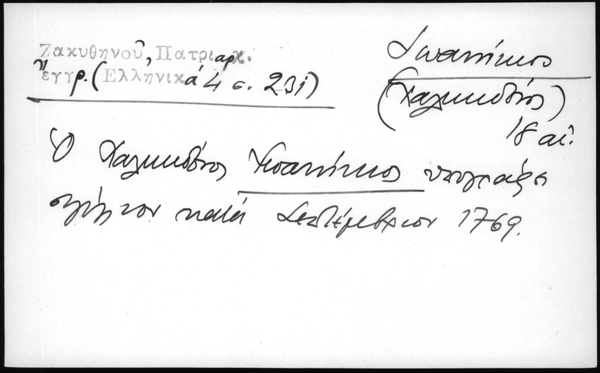 Ζακυθηνοῦ, Πατριαρχ.
ἔγγρ. (Ἑλληνικά 4 σ. 231)
Ἰωαννίκιος
(Χαλκηδόνος)
18 αἰ.
Ὁ Χαλκηδόνος Ἰωαννίκιος ὑπογράφει
κατά Σεπτέμβριον 1769.